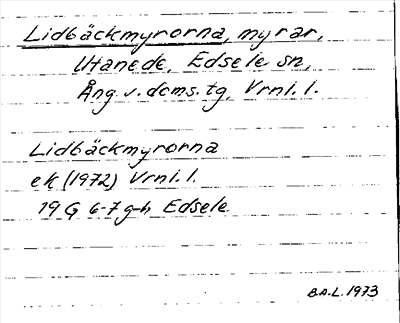 Lidbäckmyrorna, myrar,
Utanede, Edsele sn,
Ång. v. dcms. tg, Vrnl. l.
Lidbäckmyrorna
ek (1972) Vrnl. l.
19 G 6-7 g-h Edsele
B.A.L. 1973